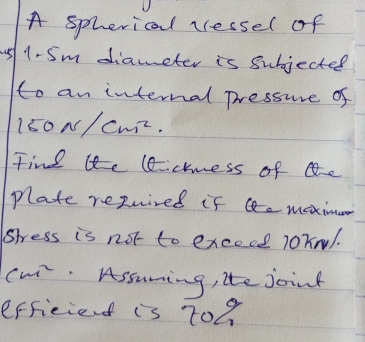 A spherical vessel of
1.5m diameter is subjected
to an internal pressure of
150 N/cm².
Find the thickness of the
plate required if the maximum
stress is not to exceed 10KN/
cm². Assuming, the joint
efficient is 70%